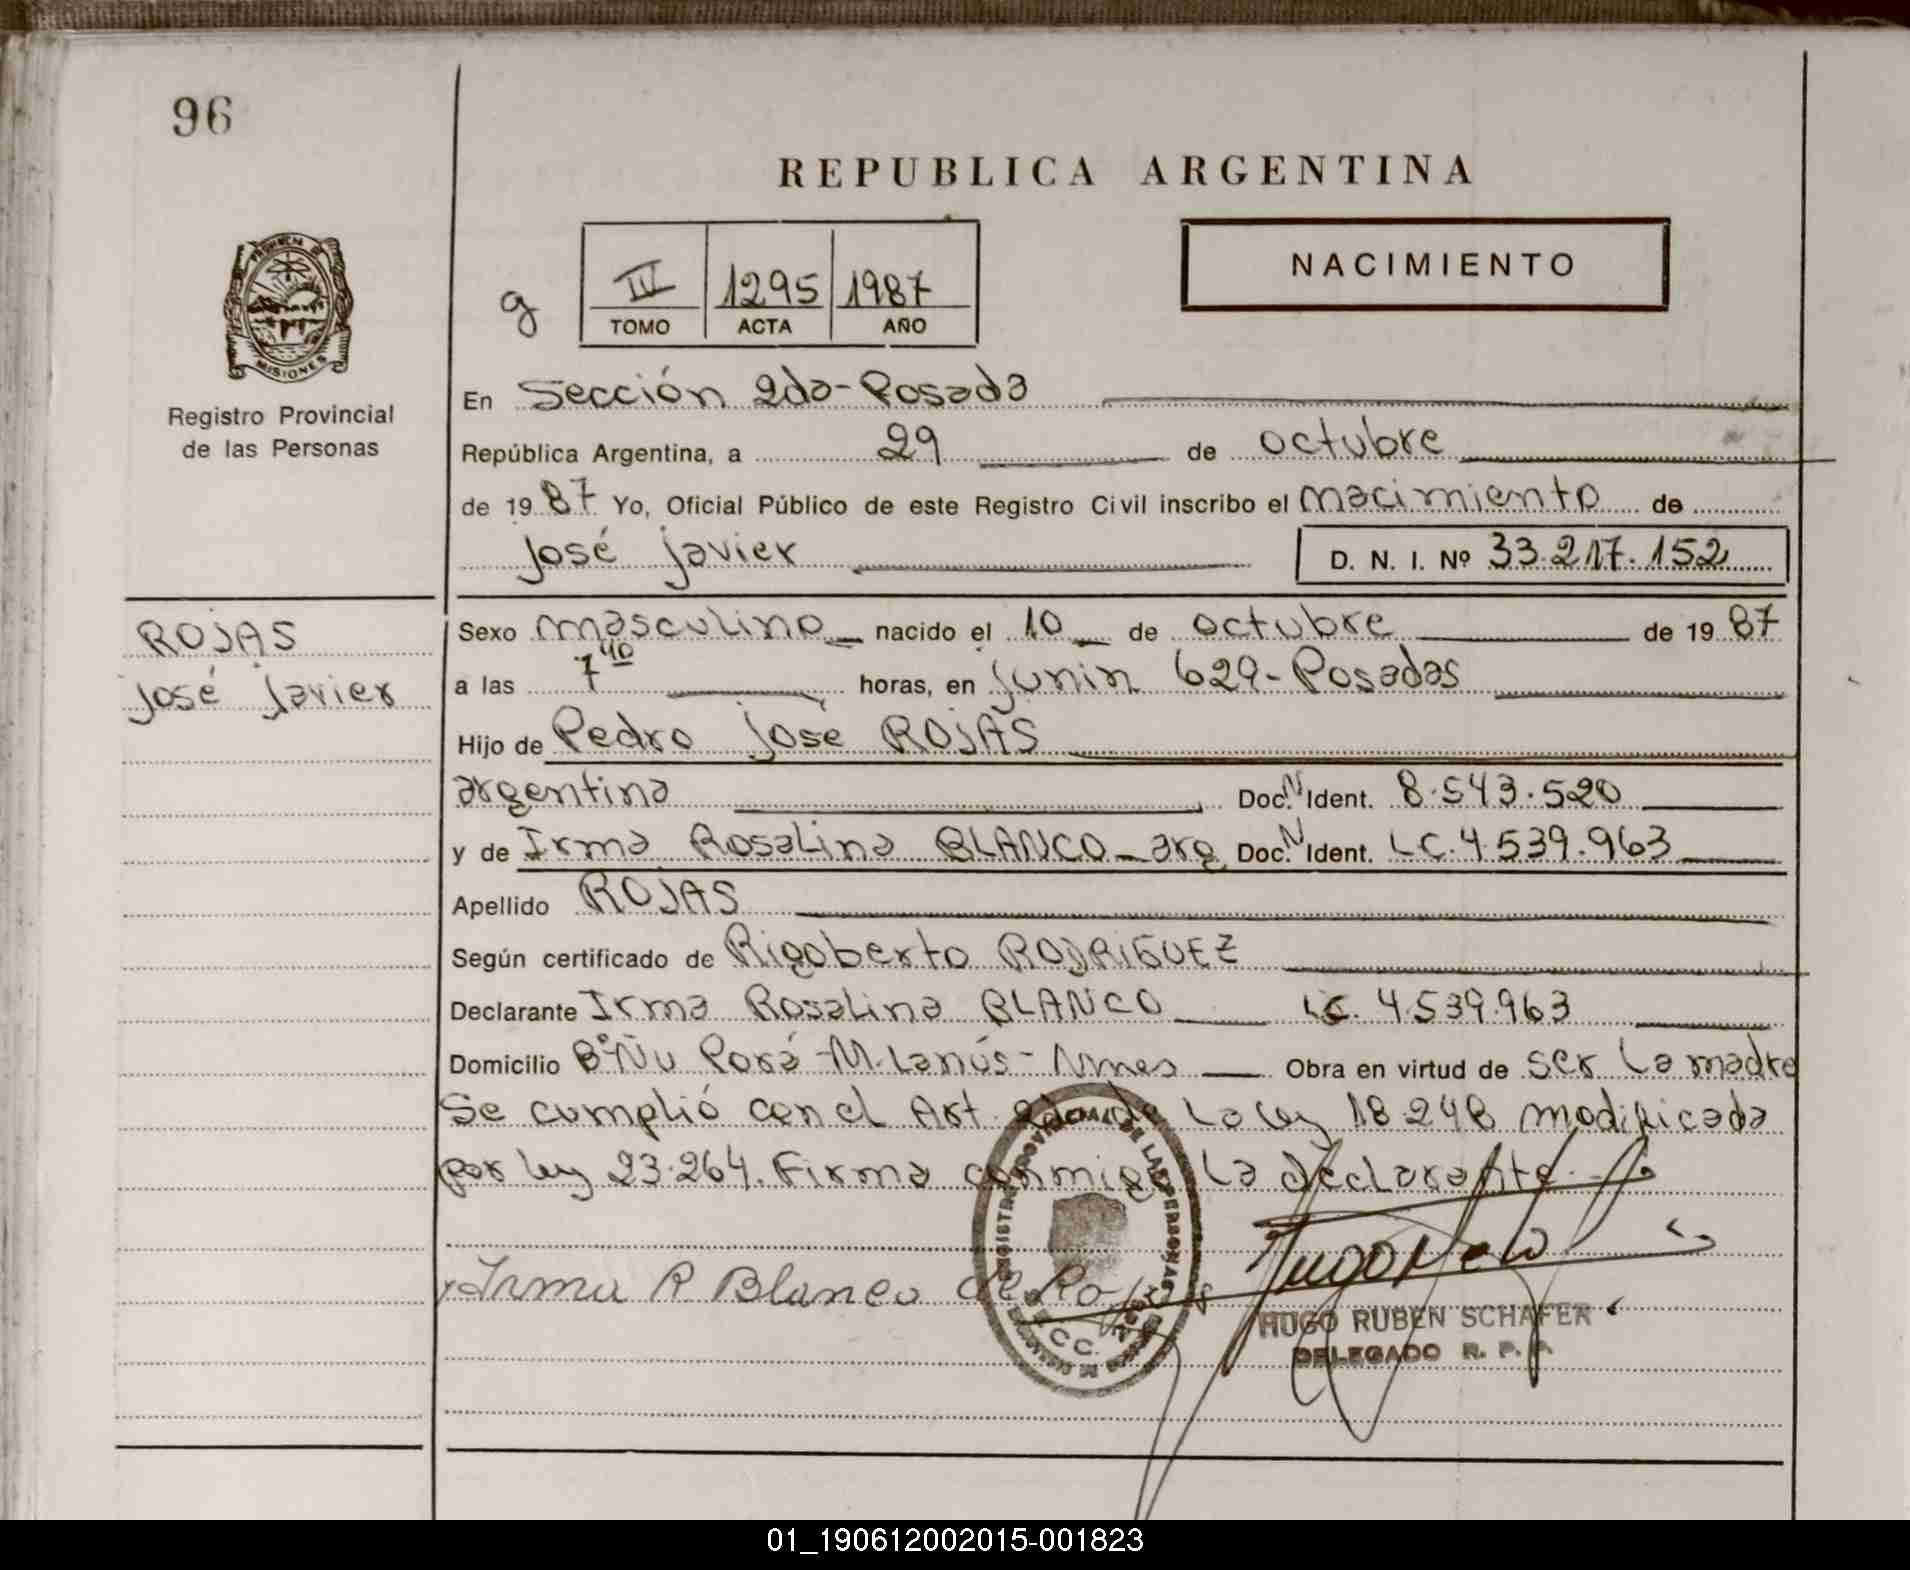 96
REPUBLICA ARGENTINA
NACIMIENTO
g
III 1295 1987
TOMO ACTA AÑO
PROVINCIA DE MISIONES
Registro Provincial
de las Personas
En Sección 2da-Posada
República Argentina, a 29 de octubre
de 1987 Yo, Oficial Público de este Registro Civil inscribo el nacimiento de
José Javier D. N. I. Nº 33.217.152
ROJAS
José Javier
Sexo masculino nacido el 10 de octubre de 1987
a las 7 40 horas, en Junin 629-Posadas
Hijo de Pedro José ROJAS
argentina Doc. N Ident. 8.543.520
y de Irma Rosalina BLANCO - arg Doc. N Ident. LC.4.539.963
Apellido ROJAS
Según certificado de Rigoberto RODRIGUEZ
Declarante Irma Rosalina BLANCO LC. 4.539.963
Domicilio Bº Ñu Porá -M. Lanús - Mnes Obra en virtud de ser la madre
Se cumplió con el Art. 2do de la ley 18.248 modificada
por ley 23.264. Firma conmigo la declarante.
REGISTRO PROVINCIAL DE LAS PERSONAS
Irma R Blanco de Rojas
HUGO RUBEN SCHAFER
DELEGADO R. P. P.
01_190612002015-001823